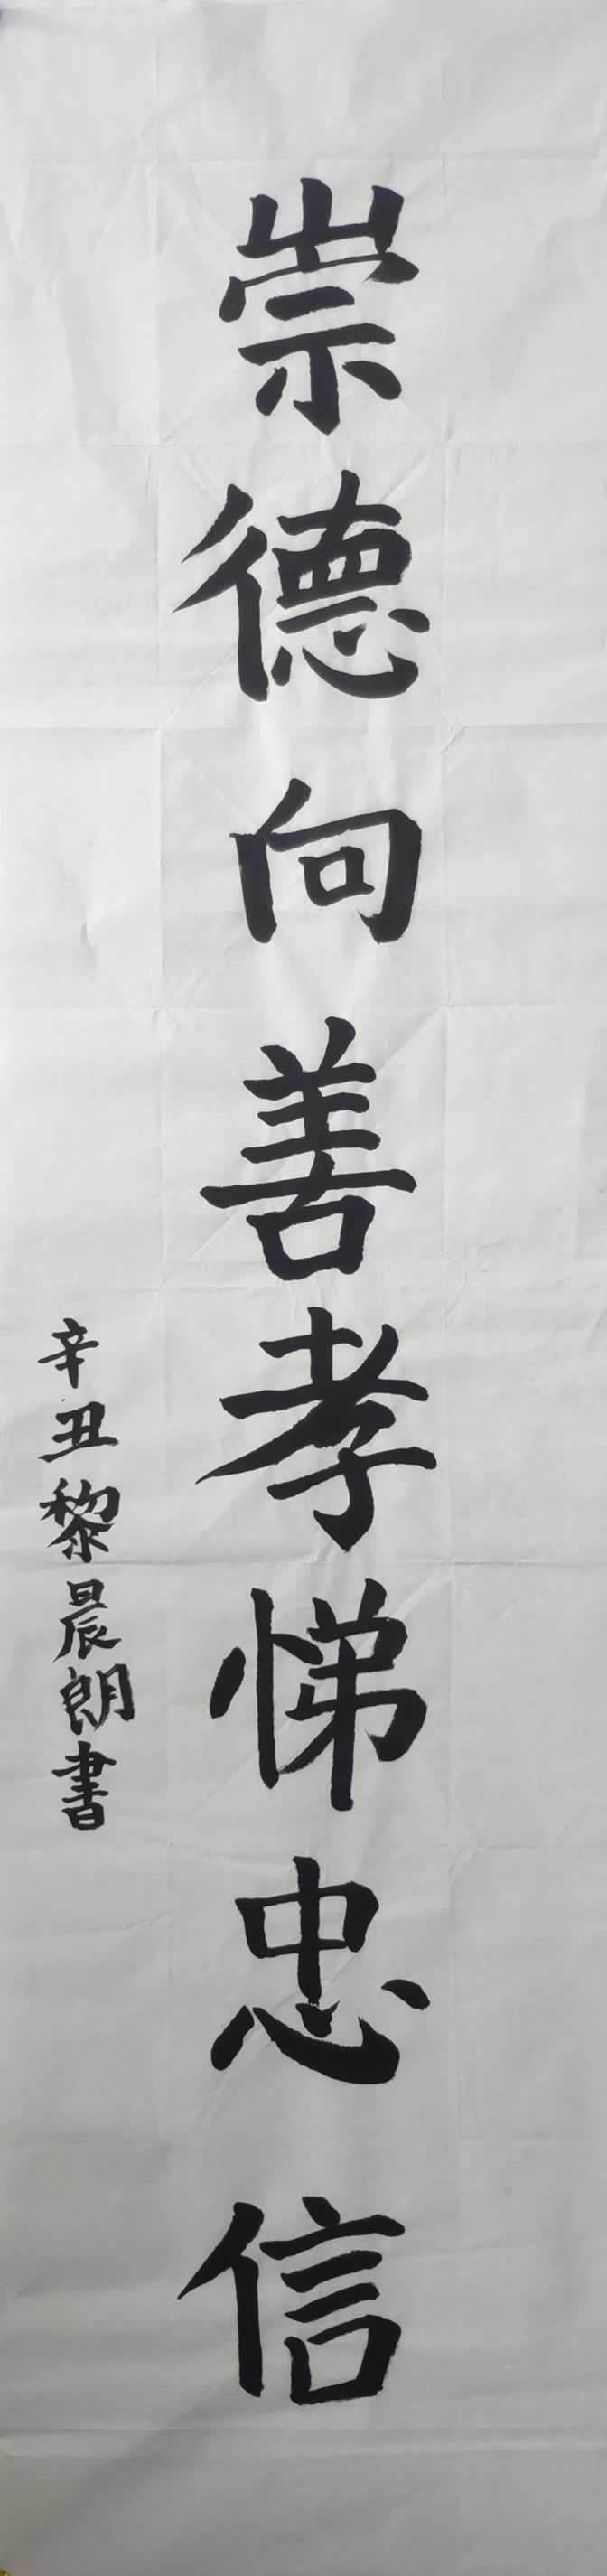 崇德向善孝悌忠信
辛丑黎晨朗書